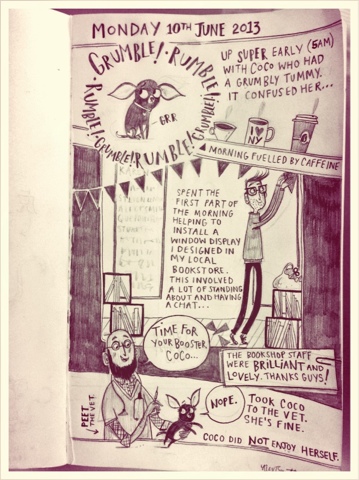 MONDAY 10TH JUNE 2013
GRUMBLE! · RUMBLE!
RUMBLE! · GRUMBLE! · RUMBLE! · GRUMBLE!
GRR
UP SUPER EARLY (5AM)
WITH COCO WHO HAD
A GRUMBLY TUMMY.
IT CONFUSED HER...
I ♥
NY
MORNING FUELLED BY CAFFEINE
SPENT THE
FIRST PART OF
THE MORNING
HELPING TO
INSTALL A
WINDOW DISPLAY
I DESIGNED IN
MY LOCAL
BOOKSTORE.
THIS INVOLVED
A LOT OF STANDING
ABOUT AND HAVING
A CHAT...
THE BOOKSHOP STAFF
WERE BRILLIANT AND
LOVELY. THANKS GUYS!
TIME FOR
YOUR BOOSTER
COCO...
PEET
THE VET.
NOPE.
TOOK COCO
TO THE VET.
SHE'S FINE.
COCO DID NOT ENJOY HERSELF.